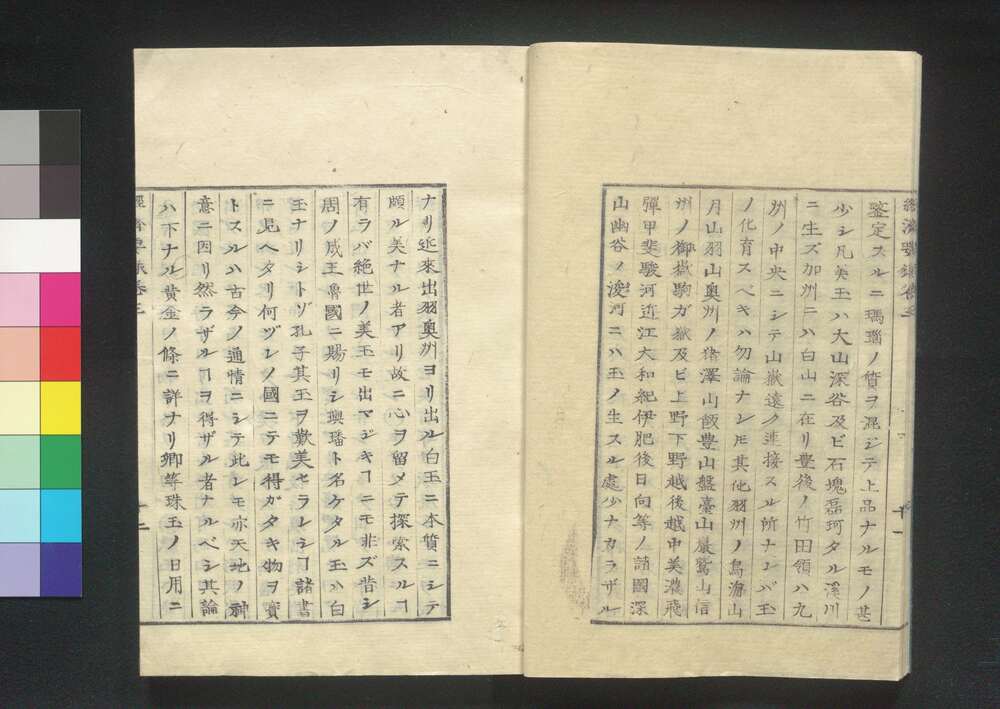 鑒定スルニ瑪瑙ノ質ヲ混シテ上品ナルモノ甚
少シ凡美玉ハ大山深谷及ビ石塊磊砢タル溪川
ニ生ズ加州ニハ白山ニ在リ豊後ノ竹田領ハ九
州ノ中央ニシテ山嶽遠ク連接スル所ナレバ玉
ノ化育スベキハ勿論ナレ𪜈其他羽州ノ鳥海山
月山羽山奥州ノ猪澤山飯豊山盤臺山巌鷲山信
州ノ御嶽駒ガ嶽及ビ上野下野越後越中美濃飛
彈甲斐駿河近江大和紀伊肥後日向等ノ諸國深
山幽谷ノ溪河ニハ玉ノ生スル處少ナカラザル
ナリ近來出羽奥州ヨリ出ル白玉ニ本質ニシテ
頗ル美ナル者アリ故ニ心ヲ留メテ探索スルヿ
有ラバ絶世ノ美玉モ出マジキヿニモ非ズ昔シ
周ノ成王魯國ニ賜リシ璵璠ト名ケタル玉ハ白
玉ナリシトゾ孔子其玉ヲ歎美セラレシヿ諸書
ニ見ヘタリ何ヅレノ國ニテモ得ガタキ物ヲ寳
トスルハ古今ノ通情ニシテ此レモ亦天地ノ神
意ニ因リ然ラザルヿヲ得ザル者ナルベシ其論
ハ下ナル黄金ノ條ニ詳ナリ卿等珠玉ノ日用ニ